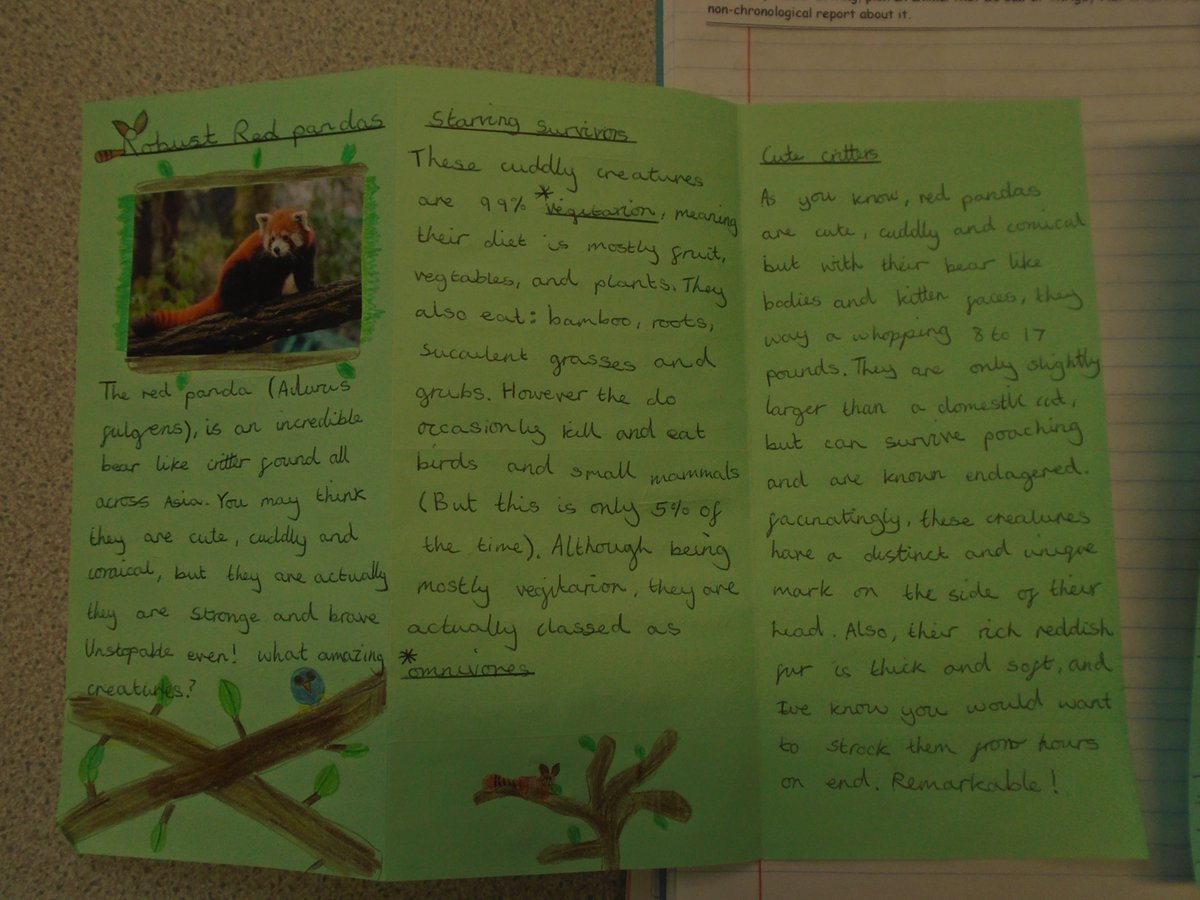 non-chronological report about it.
Robust Red pandas
The red panda (Ailurus
fulgrens), is an incredible
bear like critter found all
across Asia. You may think
they are cute, cuddly and
comical, but they are actually
they are stronge and brave
Unstopable even! what amazing
creatures?
Starving survivors
These cuddly creatures
are 99% *vegitarion, meaning
their diet is mostly fruit,
vegtables, and plants. They
also eat: bamboo, roots,
succulent grasses and
grubs. However the do
occasionly kill and eat
birds and small mammals
(But this is only 5% of
the time). Although being
mostly vegitarion, they are
actually classed as
*omnivores
Cute critters
As you know, red pandas
are cute, cuddly and comical
but with their bear like
bodies and kitten faces, they
way a whopping 8 to 17
pounds. They are only slightly
larger than a domestic cat,
but can survive poaching
and are known endagered.
facinatingly, these creatures
have a distinct and unique
mark on the side of their
head. Also, their rich reddish
fur is thick and soft, and
Ive know you would want
to strock them hours
on end. Remarkable!